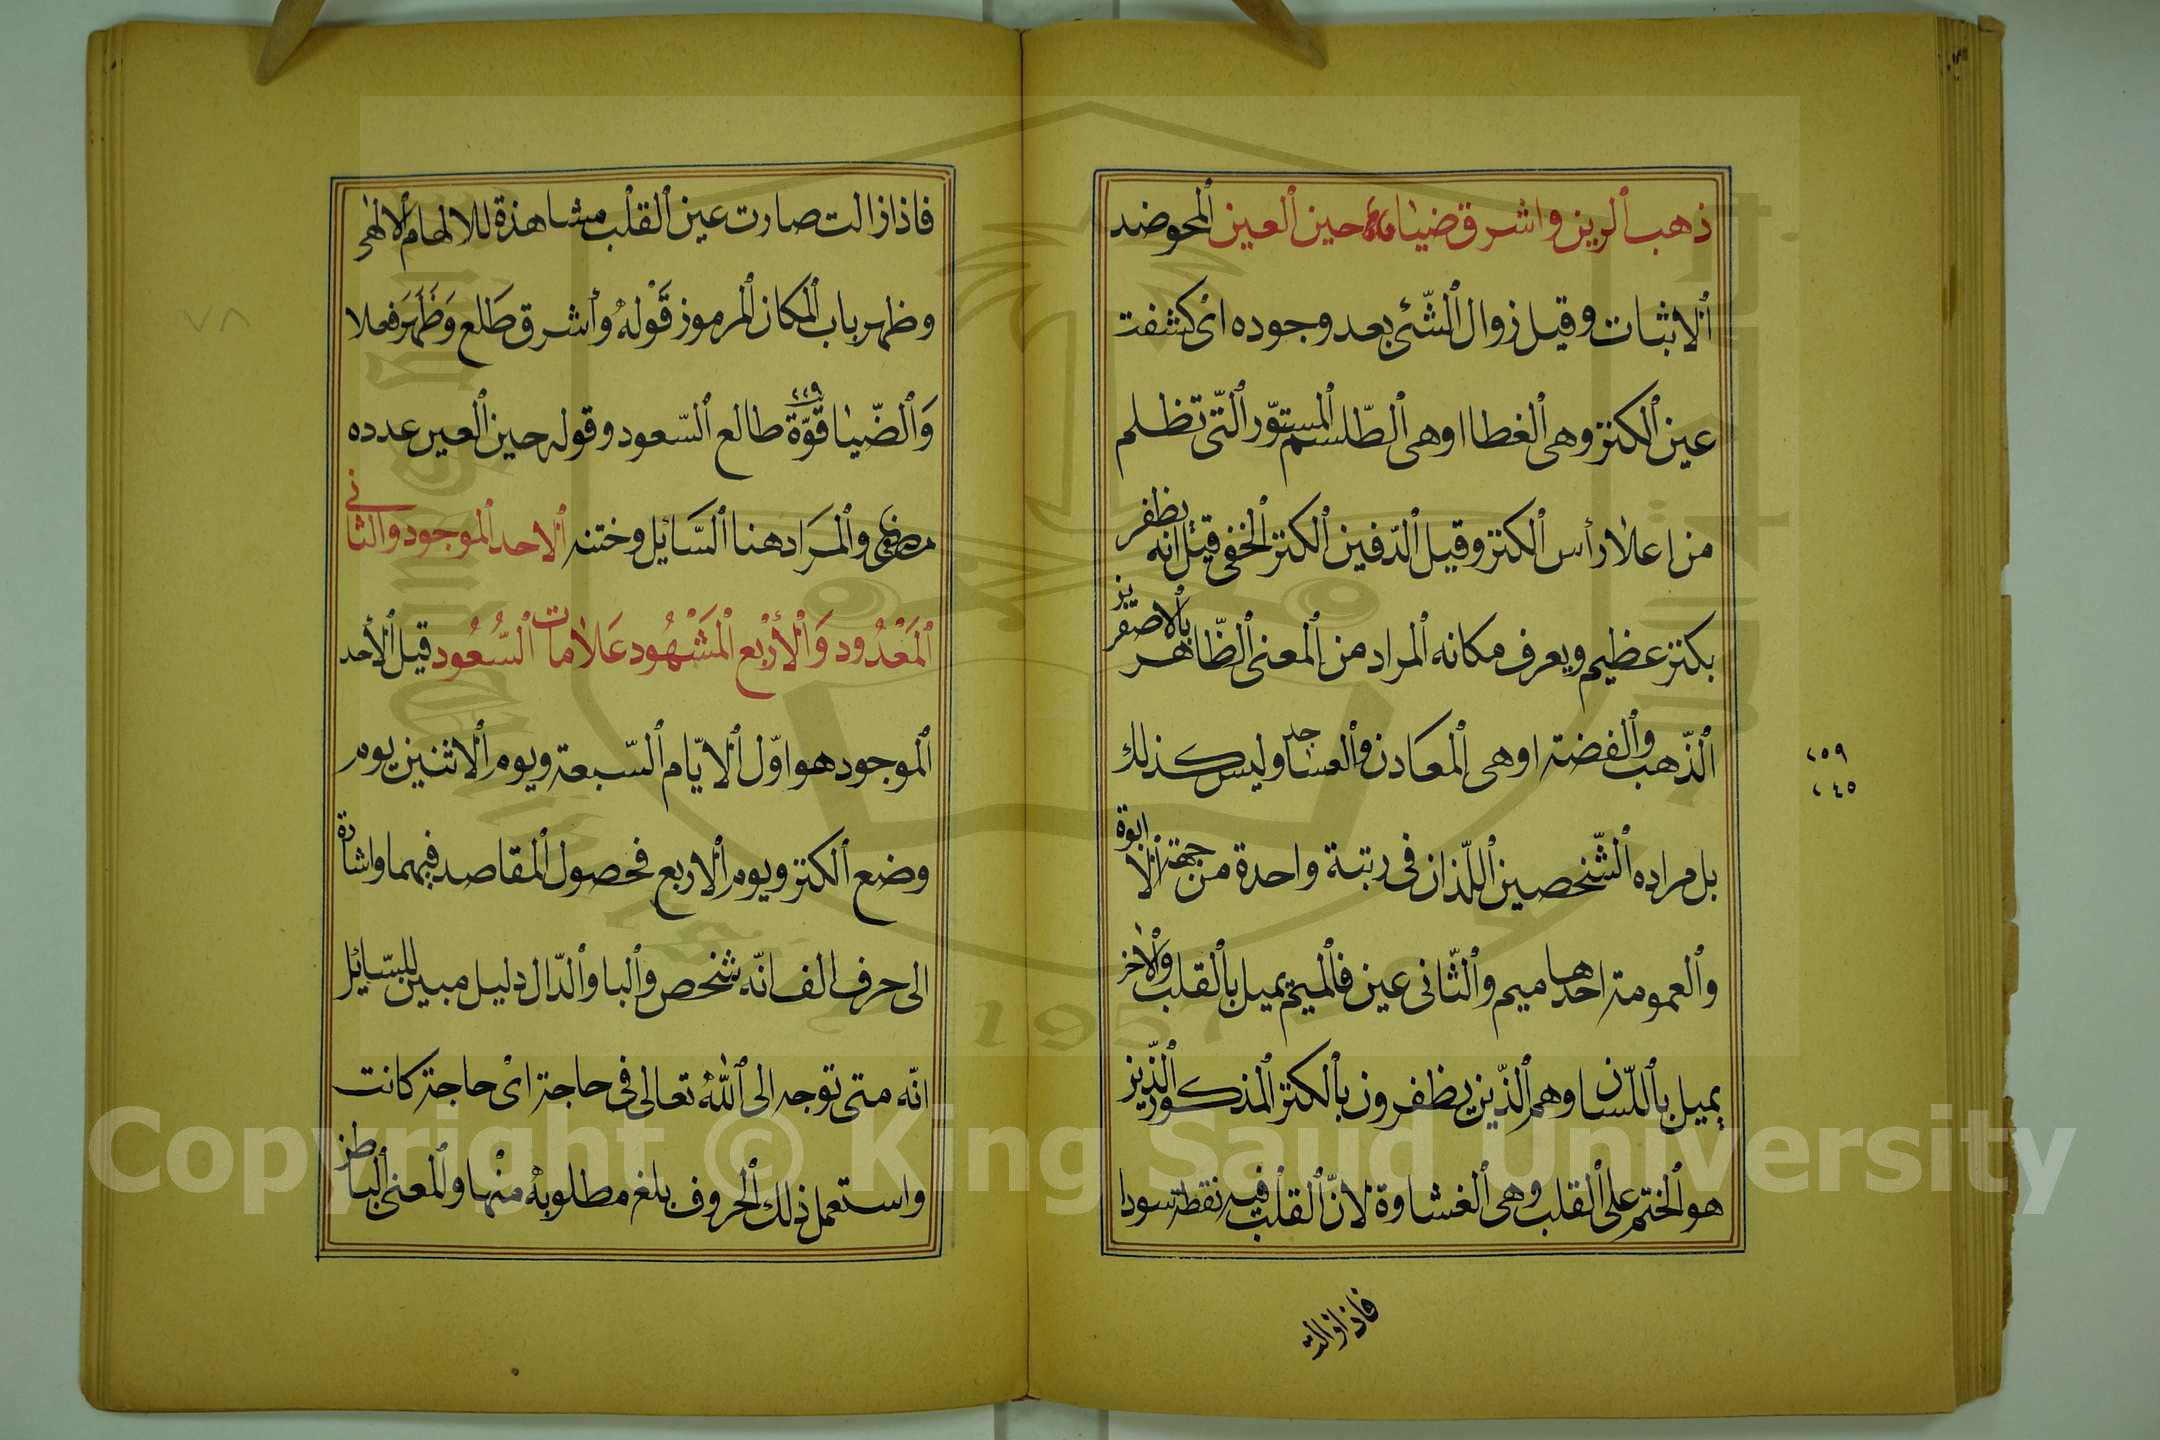 ذهب الرين واشرق ضياء حين العين المحو ضد
الاثبات وقيل زوال الشئ بعد وجوده اى كشفت
عين الكنز وهى الغطا اوهى الطلسم المستور التى تظلم
من اعلا رأس الكنز وقيل الدفين الكنز الخفى قيل انه يظفر
بكنز عظيم ويعرف مكانه المراد من المعنى الظاهر بالاصفرين
الذهب والفضة اوهى المعادن والعساجد وليس كذلك
بل مراده الشخصين اللذان فى رتبة واحدة من جهة الابوة
والعمومة احدها ميم والثانى عين فالميم يميل بالقلب والاخر
يميل باللسان وهم الذين يظفرون بالكنز المذكور الذين
هو الختم على القلب وهى الغشاوة لان القلب فيه نقطة سودا
فاذا زالت
٢٥٩
٢٤٥
فاذا زالت صارت عين القلب مشاهذة للالهام الالهى
وظهر باب المكان المرموز قَوْلهُ وأشرق طَلع وَظَهَر فعلا
وَالضّيا قوّة طالع السّعود وقوله حين العين عدده
٢٢٩
والمراد هنا السَّايل وختنه الاحد الموجود والثانى
المَعْدُود وَالأرْبع المَشْهُود عَلامات السُّعُود قيل الأحد
الموجود هو اوّل الايّام السّبعة ويوم الاثنين يوم
وضع الكنز ويوم الاربع فحصول المقاصد فيهما واشارة
الى حرف الف انّه شخص والبا والدّال دليل مبين للسّايل
انّه متى توجه الى اللهُ تعالى فى حاجة اىْ حاجة كانت
واستعمل ذلك الحروف بلغ مطلوبهُ منْها والمعنى الباطن
٧٨
Copyright © King Saud University
1957